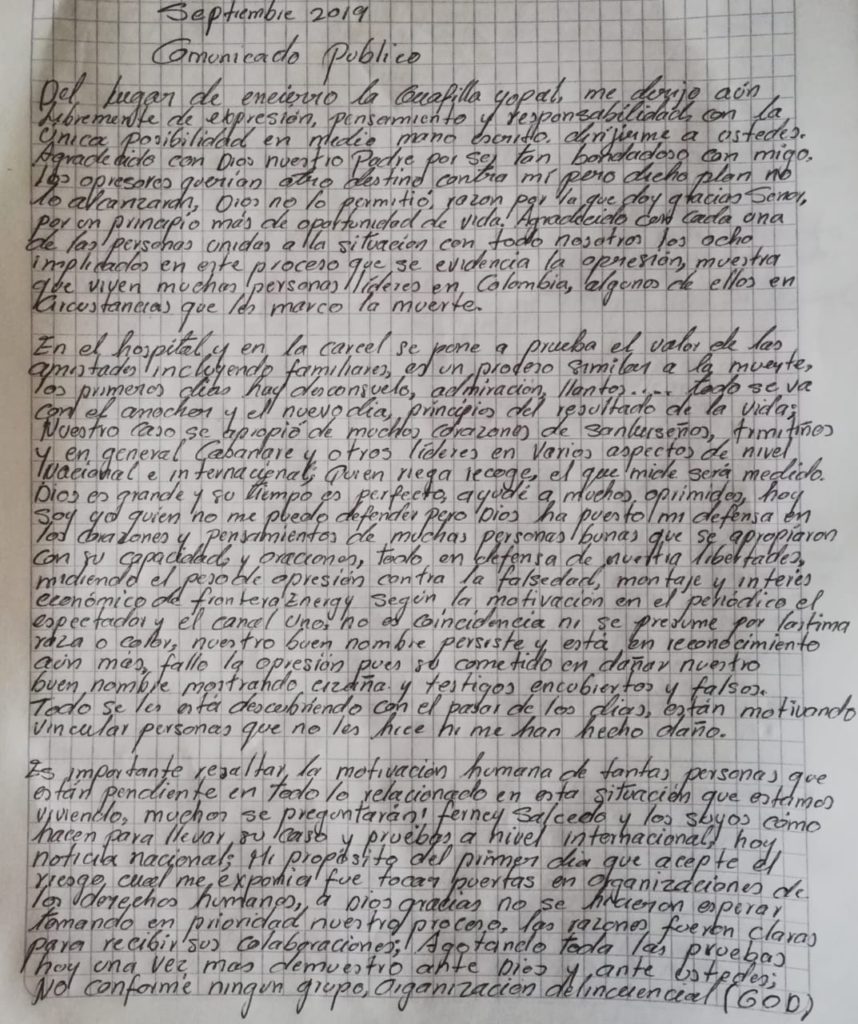 Septiembre 2019
Comunicado Publico
Del lugar de encierro la Guafilla yopal, me dirijo aún
libremente de expresión, pensamiento y responsabilidad con la
única posibilidad en medio mano escrito. dirijirme a ustedes.
Agradecido con Dios nuestro Padre por ser tan bondadoso con migo.
los opresores querian otro destino contra mi pero dicho plan no
lo alcanzaran, Dios no lo permitió, razon por la que doy gracias Senor,
por un principio más de oportunidad de vida. Agradecido con cada una
de las personas unidas a la situación con todo nosotros los ocho
implicados en este proceso que se evidencia la opresión, muestra
que viven muchas personas líderes en Colombia, algunos de ellos en
Circustancias que les marco la muerte.
En el hospital y en la carcel se pone a prueba el valor de las
amistades incluyendo familiares, es un proceso similar a la muerte,
los primeros días hay desconsuelo, admiración, llantos.... todo se va
con el anochecer y el nuevo día, principios del resultado de la vida;
Nuestro caso se apropió de muchos corazones de sanluiseños, trinitiños
y en general Casanare y otros líderes en varios aspectos de nivel
Nacional e internacional; Quien riega recoge, el que mide será medido.
Dios es grande y su tiempo es perfecto, ayudé a muchos oprimidos, hoy
soy yo quien no me puedo defender pero Dios ha puesto mi defensa en
los corazones y pensamientos de muchas personas bunas que se apropiaron
con su capacidad y oraciones, todo en defensa de nuestra libertades,
midiendo el peso de opresión contra la falsedad, montaje y interés
económico de frontera Energy según la motivación en el periódico el
espectador y el canal uno, no es coincidencia ni se presume por lastima
raza o color, nuestro buen nombre persiste y está en reconocimiento
aún más, fallo la opresión pues su cometido en dañar nuestro
buen nombre mostrando cizaña y testigos encubiertos y falsos.
Todo se les está descubriendo con el pasar de los días, están motivando
vincular personas que no les hice ni me han hecho daño.
Es importante resaltar la motivación humana de tantas personas que
están pendiente en todo lo relacionado en esta situación que estamos
viviendo, muchos se preguntarán! ferney Salcedo y los suyos como
hacen para llevar su caso y pruebas a nivel internacional, hoy
noticia nacional; Mi propósito del primer día que acepte el
riesgo cual me exponia fue tocar puertas en organizaciones de
los derechos humanos, a Dios gracias no se hicieron esperar
tomando en prioridad nuestro proceso, las razones fueron claras
para recibir sus colaboraciones; Agotando toda las pruebas
hoy una vez mas demuestro ante Dios y ante ustedes;
No conforme ningun grupo, Organización delincuencial (GOD)